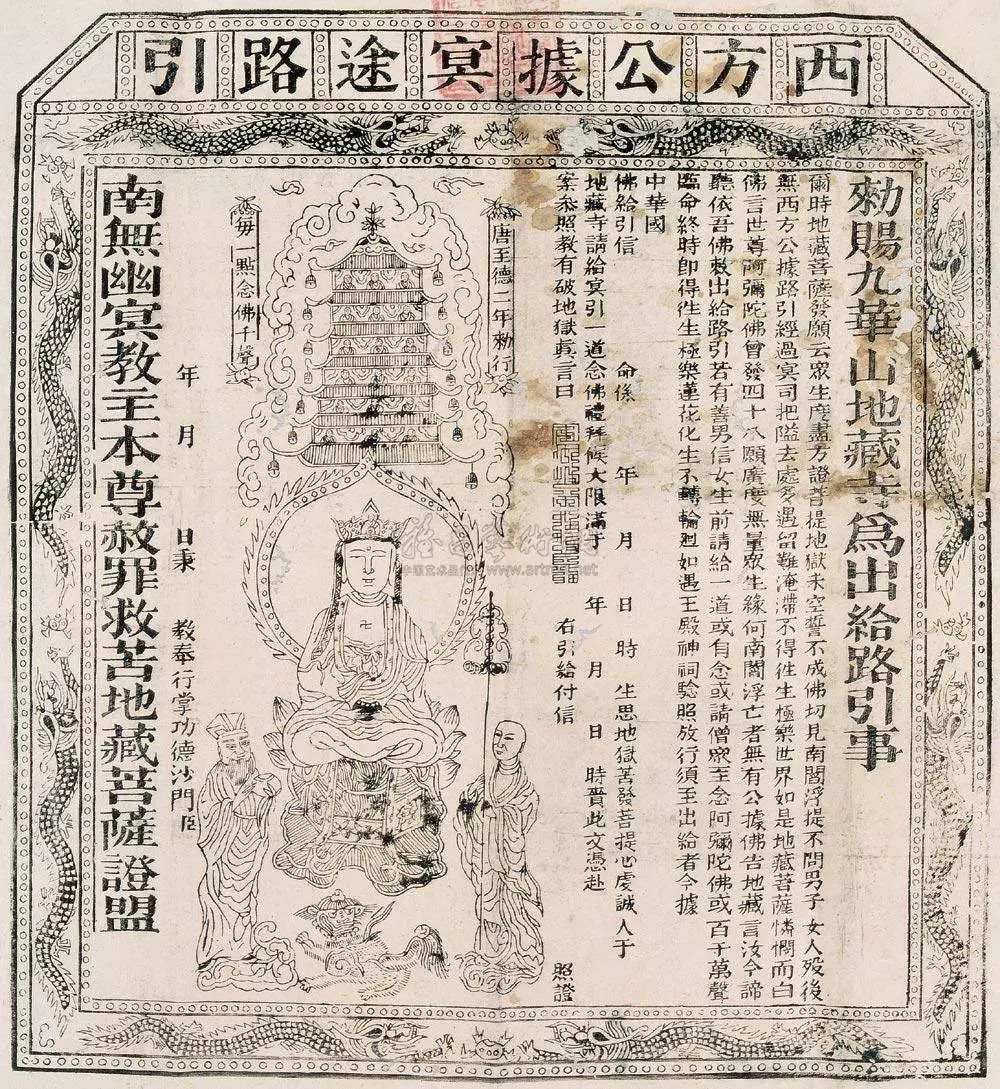 西方公據㝠途路引
勑賜九華山地藏寺爲出給路引事
爾時地藏菩薩發願云眾生度盡方證菩提地獄未空誓不成佛切見南閻浮提不問男子女人殁後
無西方公據路引經過㝠司把隘去處多遇留難淹滯不得徃生極樂世界如是地藏菩薩憐憫而白
佛言世尊阿彌陀佛曾發四十八願廣度無量眾生緣何南閻浮亡者無有公據佛告地藏言汝今諦
聽依吾佛敕出給路引若有善男信女生前請給一道或自念或請僧眾至念阿彌陀佛或百千萬聲
臨命終時即得徃生極樂蓮花化生不轉輪廻如遇王殿神祠驗照放行須至出給者令據
中華國
佛給引信 命係 年 月 日 時 生思地獄苦發菩提心虔誠人于
地藏寺請給㝠引一道念佛禮拜候大限滿于 年 月 日 時賫此文憑赴
案參照教有破地獄眞言曰 右引給付信 照證
唐至德二年勑行
每一點念佛千聲
年 月 日秉 教奉行掌功德沙門臣
南無幽㝠教主本尊赦罪救苦地藏菩薩證盟